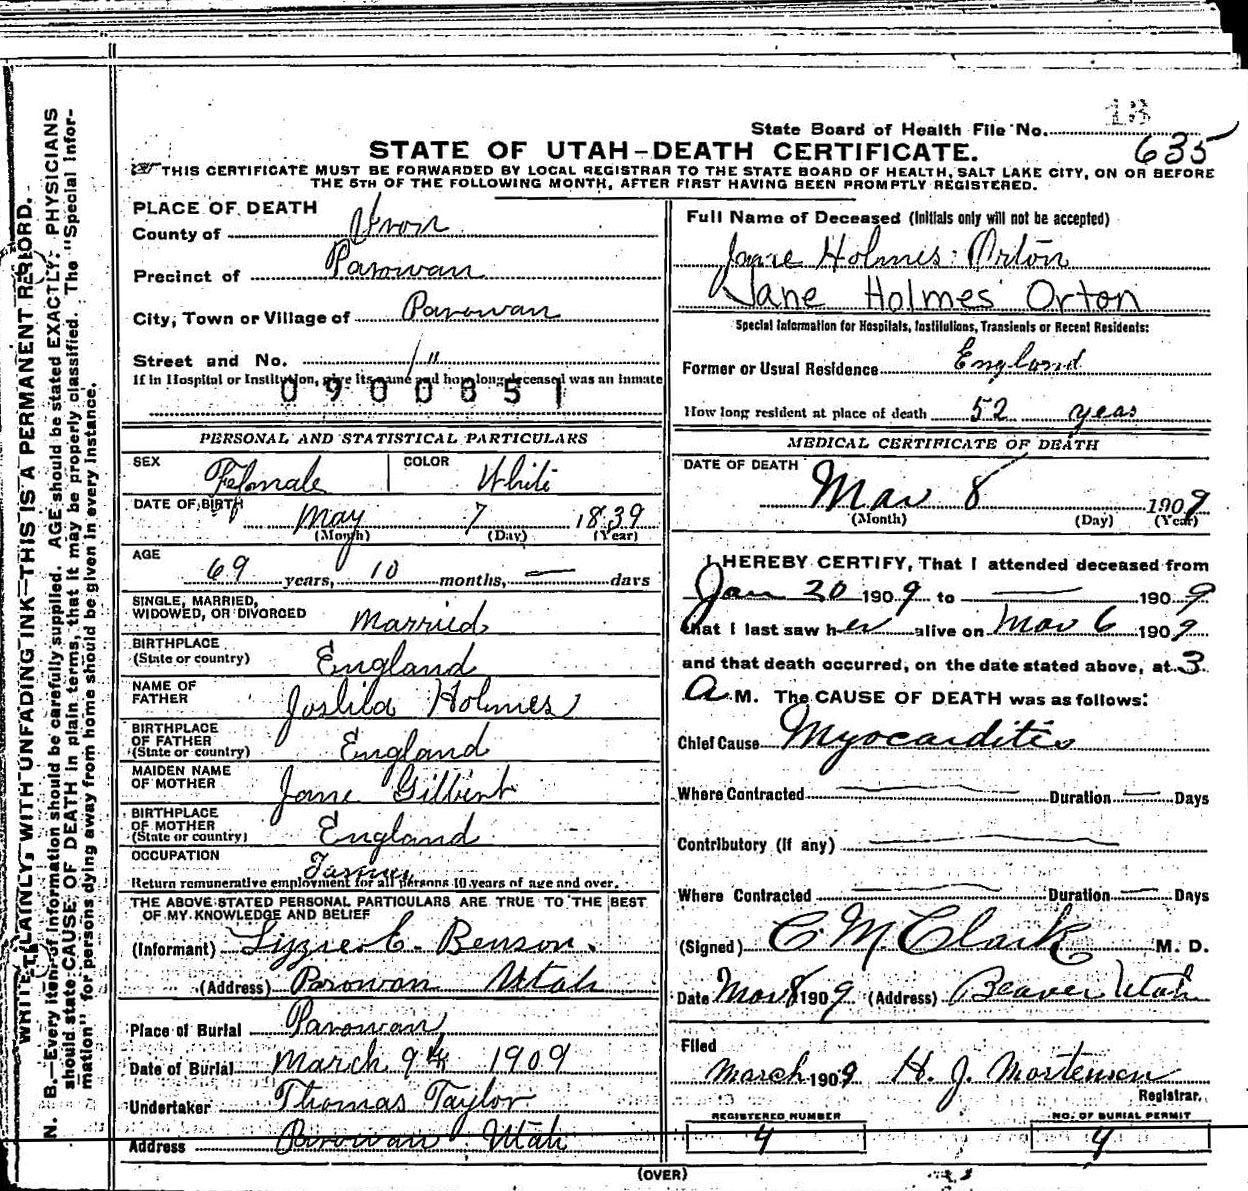 WRITE PLAINLY, WITH UNFADING INK—THIS IS A PERMANENT RECORD.
N. B.—Every item of information should be carefully supplied. AGE should be stated EXACTLY. PHYSICIANS
should state CAUSE OF DEATH in plain terms, that it may be properly classified. The "Special Infor-
mation" for persons dying away from home should be given in every instance.
13
State Board of Health File No.
635
STATE OF UTAH—DEATH CERTIFICATE.
THIS CERTIFICATE MUST BE FORWARDED BY LOCAL REGISTRAR TO THE STATE BOARD OF HEALTH, SALT LAKE CITY, ON OR BEFORE
THE 5TH OF THE FOLLOWING MONTH, AFTER FIRST HAVING BEEN PROMPTLY REGISTERED.
PLACE OF DEATH
County of Iron
Precinct of Parowan
City, Town or Village of Parowan
Street and No. "
If in Hospital or Institution, give its name and how long deceased was an inmate
0900851
PERSONAL AND STATISTICAL PARTICULARS
SEX Female COLOR White
DATE OF BIRTH May 7 1839
(Month) (Day) (Year)
AGE
69 years, 10 months, — days
SINGLE, MARRIED,
WIDOWED, OR DIVORCED Married
BIRTHPLACE
(State or country) England
NAME OF
FATHER Holmes
BIRTHPLACE
OF FATHER
(State or country) England
MAIDEN NAME
OF MOTHER Jane Gilbert
BIRTHPLACE
OF MOTHER
(State or country) England
OCCUPATION
Return remunerative employment for all persons 10 years of age and over.
THE ABOVE STATED PERSONAL PARTICULARS ARE TRUE TO THE BEST
OF MY KNOWLEDGE AND BELIEF
(Informant) Lizzie C. Benson.
(Address) Parowan Utah
Place of Burial Parowan
Date of Burial March 9th 1909
Undertaker Thomas Taylor
Address Parowan Utah
Full Name of Deceased (Initials only will not be accepted)
Jane Holmes Orton
Jane Holmes Orton
Special Information for Hospitals, Institutions, Transients or Recent Residents:
Former or Usual Residence England
How long resident at place of death 52 years
MEDICAL CERTIFICATE OF DEATH
DATE OF DEATH
Mar 8 1909
(Month) (Day) (Year)
I HEREBY CERTIFY, That I attended deceased from
Jan 20 1909 to — 1909
that I last saw her alive on Mar 6 1909
and that death occurred, on the date stated above, at 3
A.M. The CAUSE OF DEATH was as follows:
Chief Cause Myocarditis
Where Contracted — Duration — Days
Contributory (if any) —
Where Contracted — Duration — Days
(Signed) C M Clark M. D.
Date Mar 8 1909 (Address) Beaver Utah
Filed
March 1909 H. J. Mortensen
Registrar.
REGISTERED NUMBER
4
NO. OF BURIAL PERMIT
4
(OVER)